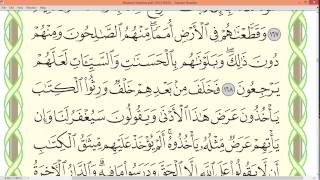 ١٦٧ وَقَطَّعْنَٰهُمْ فِي ٱلْأَرْضِ أُمَمًا ۖ مِّنْهُمُ ٱلصَّٰلِحُونَ وَمِنْهُمْ
دُونَ ذَٰلِكَ ۖ وَبَلَوْنَٰهُم بِٱلْحَسَنَٰتِ وَٱلسَّيِّـَٔاتِ لَعَلَّهُمْ
يَرْجِعُونَ ١٦٨ فَخَلَفَ مِنۢ بَعْدِهِمْ خَلْفٌ وَرِثُوا۟ ٱلْكِتَٰبَ
يَأْخُذُونَ عَرَضَ هَٰذَا ٱلْأَدْنَىٰ وَيَقُولُونَ سَيُغْفَرُ لَنَا وَإِن
يَأْتِهِمْ عَرَضٌ مِّثْلُهُۥ يَأْخُذُوهُ ۚ أَلَمْ يُؤْخَذْ عَلَيْهِم مِّيثَٰقُ ٱلْكِتَٰبِ
أَن لَّا يَقُولُوا۟ عَلَى ٱللَّهِ إِلَّا ٱلْحَقَّ وَدَرَسُوا۟ مَا فِيهِ ۗ وَٱلدَّارُ ٱلْـَٔاخِرَةُ